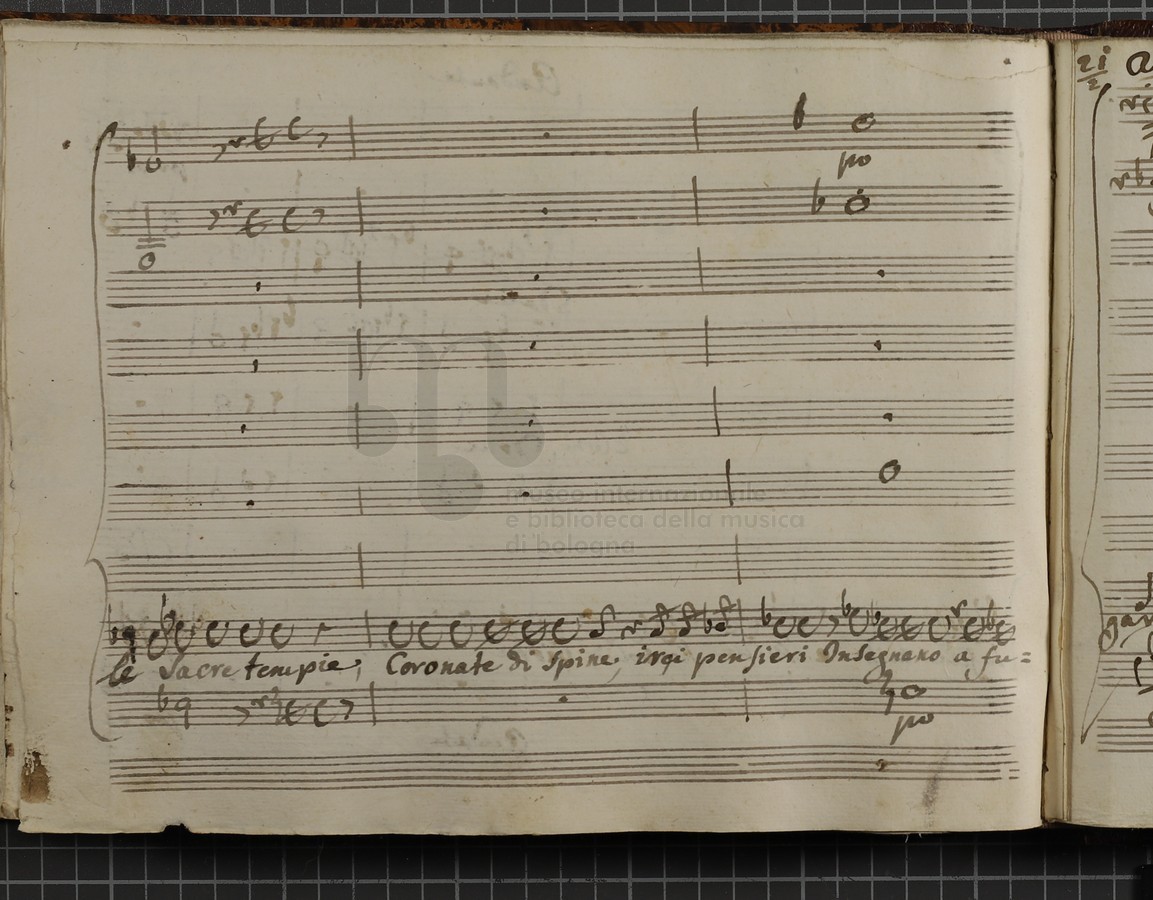 21
po
museo internazionale
e biblioteca della musica
di bologna
le Sacre tempie, Coronate di Spine, irgi pensieri Insegnano a fu=
po